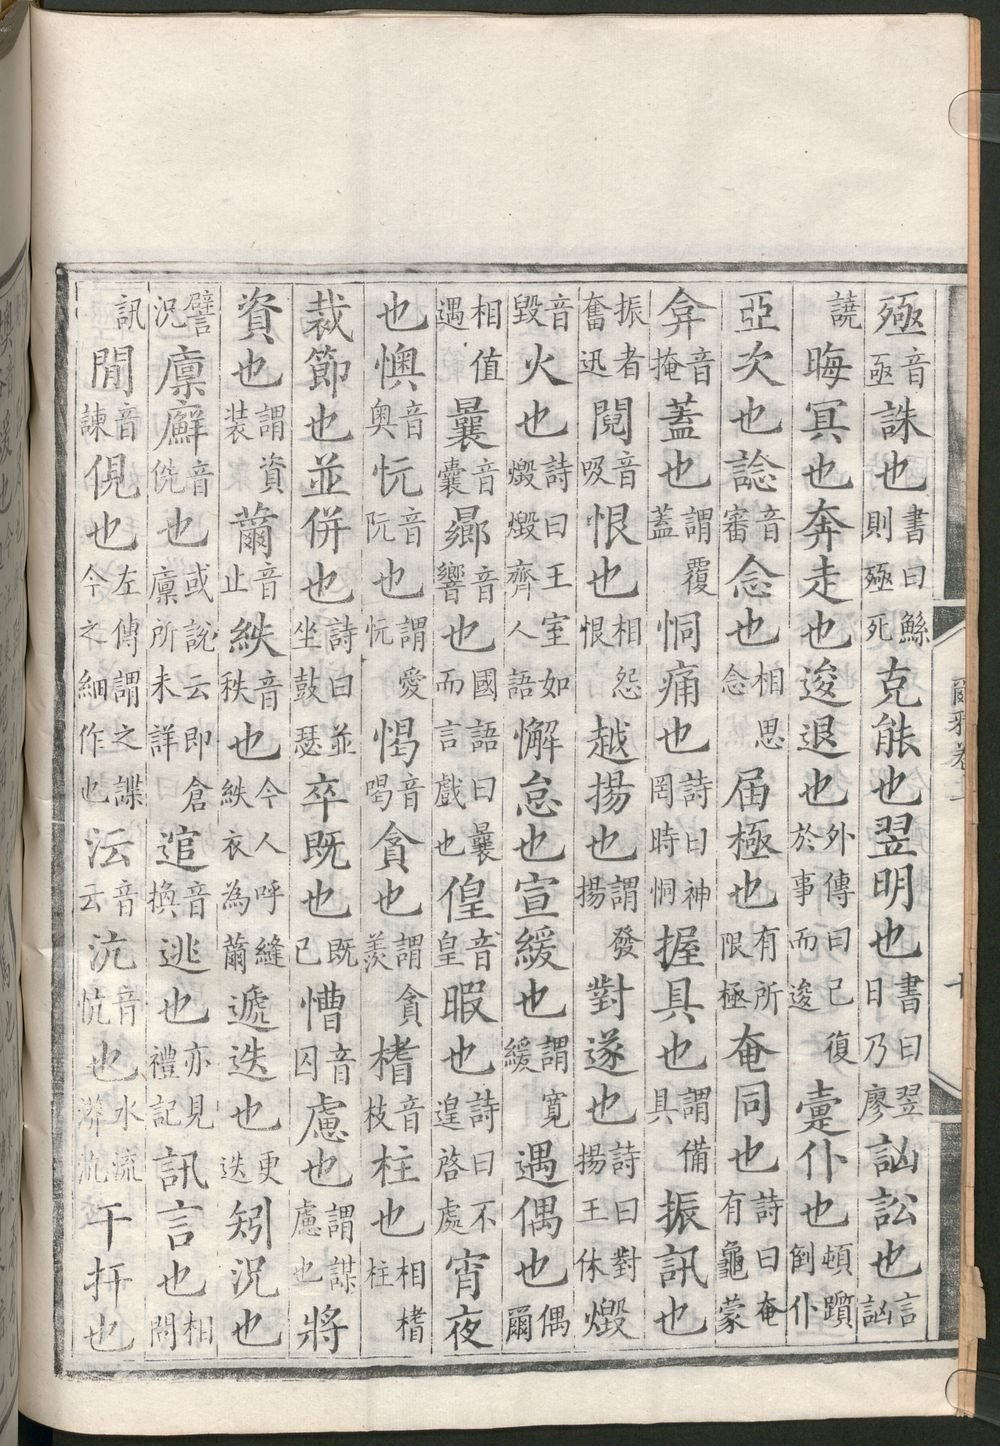 殛音殛誅也書曰鯀則殛死克能也翌明也書曰翌日乃廖訩訟也言訩
譊晦冥也奔走也逡退也外傳曰已復於事而逡疐仆也頓躓倒仆
亞次也諗音審念也相思念屆極也有所限極奄同也詩曰奄有龜蒙
弇音掩蓋也謂覆蓋恫痛也詩曰神罔時恫握具也謂備具振訊也
振者奮迅䦧音吸恨也相怨恨越揚也謂發揚對遂也詩曰對揚王休燬
音毀火也詩曰王室如燬燬齊人語懈怠也宣緩也謂寬緩遇偶也偶爾
相值遇曩音囊曏音響也國語曰曩而言戲也偟音皇暇也詩曰不遑啓處宵夜
也懊音奧忨音阮也謂愛忨愒音喝貪也謂貪羨榰音枝柱也相榰柱
裁節也並併也詩曰並坐鼓瑟卒既也既已慒音囚慮也謂謀慮也將
資也謂資裝黹音止紩音秩也今人呼縫紩衣為黹遞迭也更迭矧況也
譬況廩廯音㑎也或說云即倉廩所未詳逭音換逃也亦見禮記訊言也相問
訊閒音諫俔也左傳謂之諜今之細作也沄音云沆音忼也水流漭沆干扞也
爾雅卷二
十